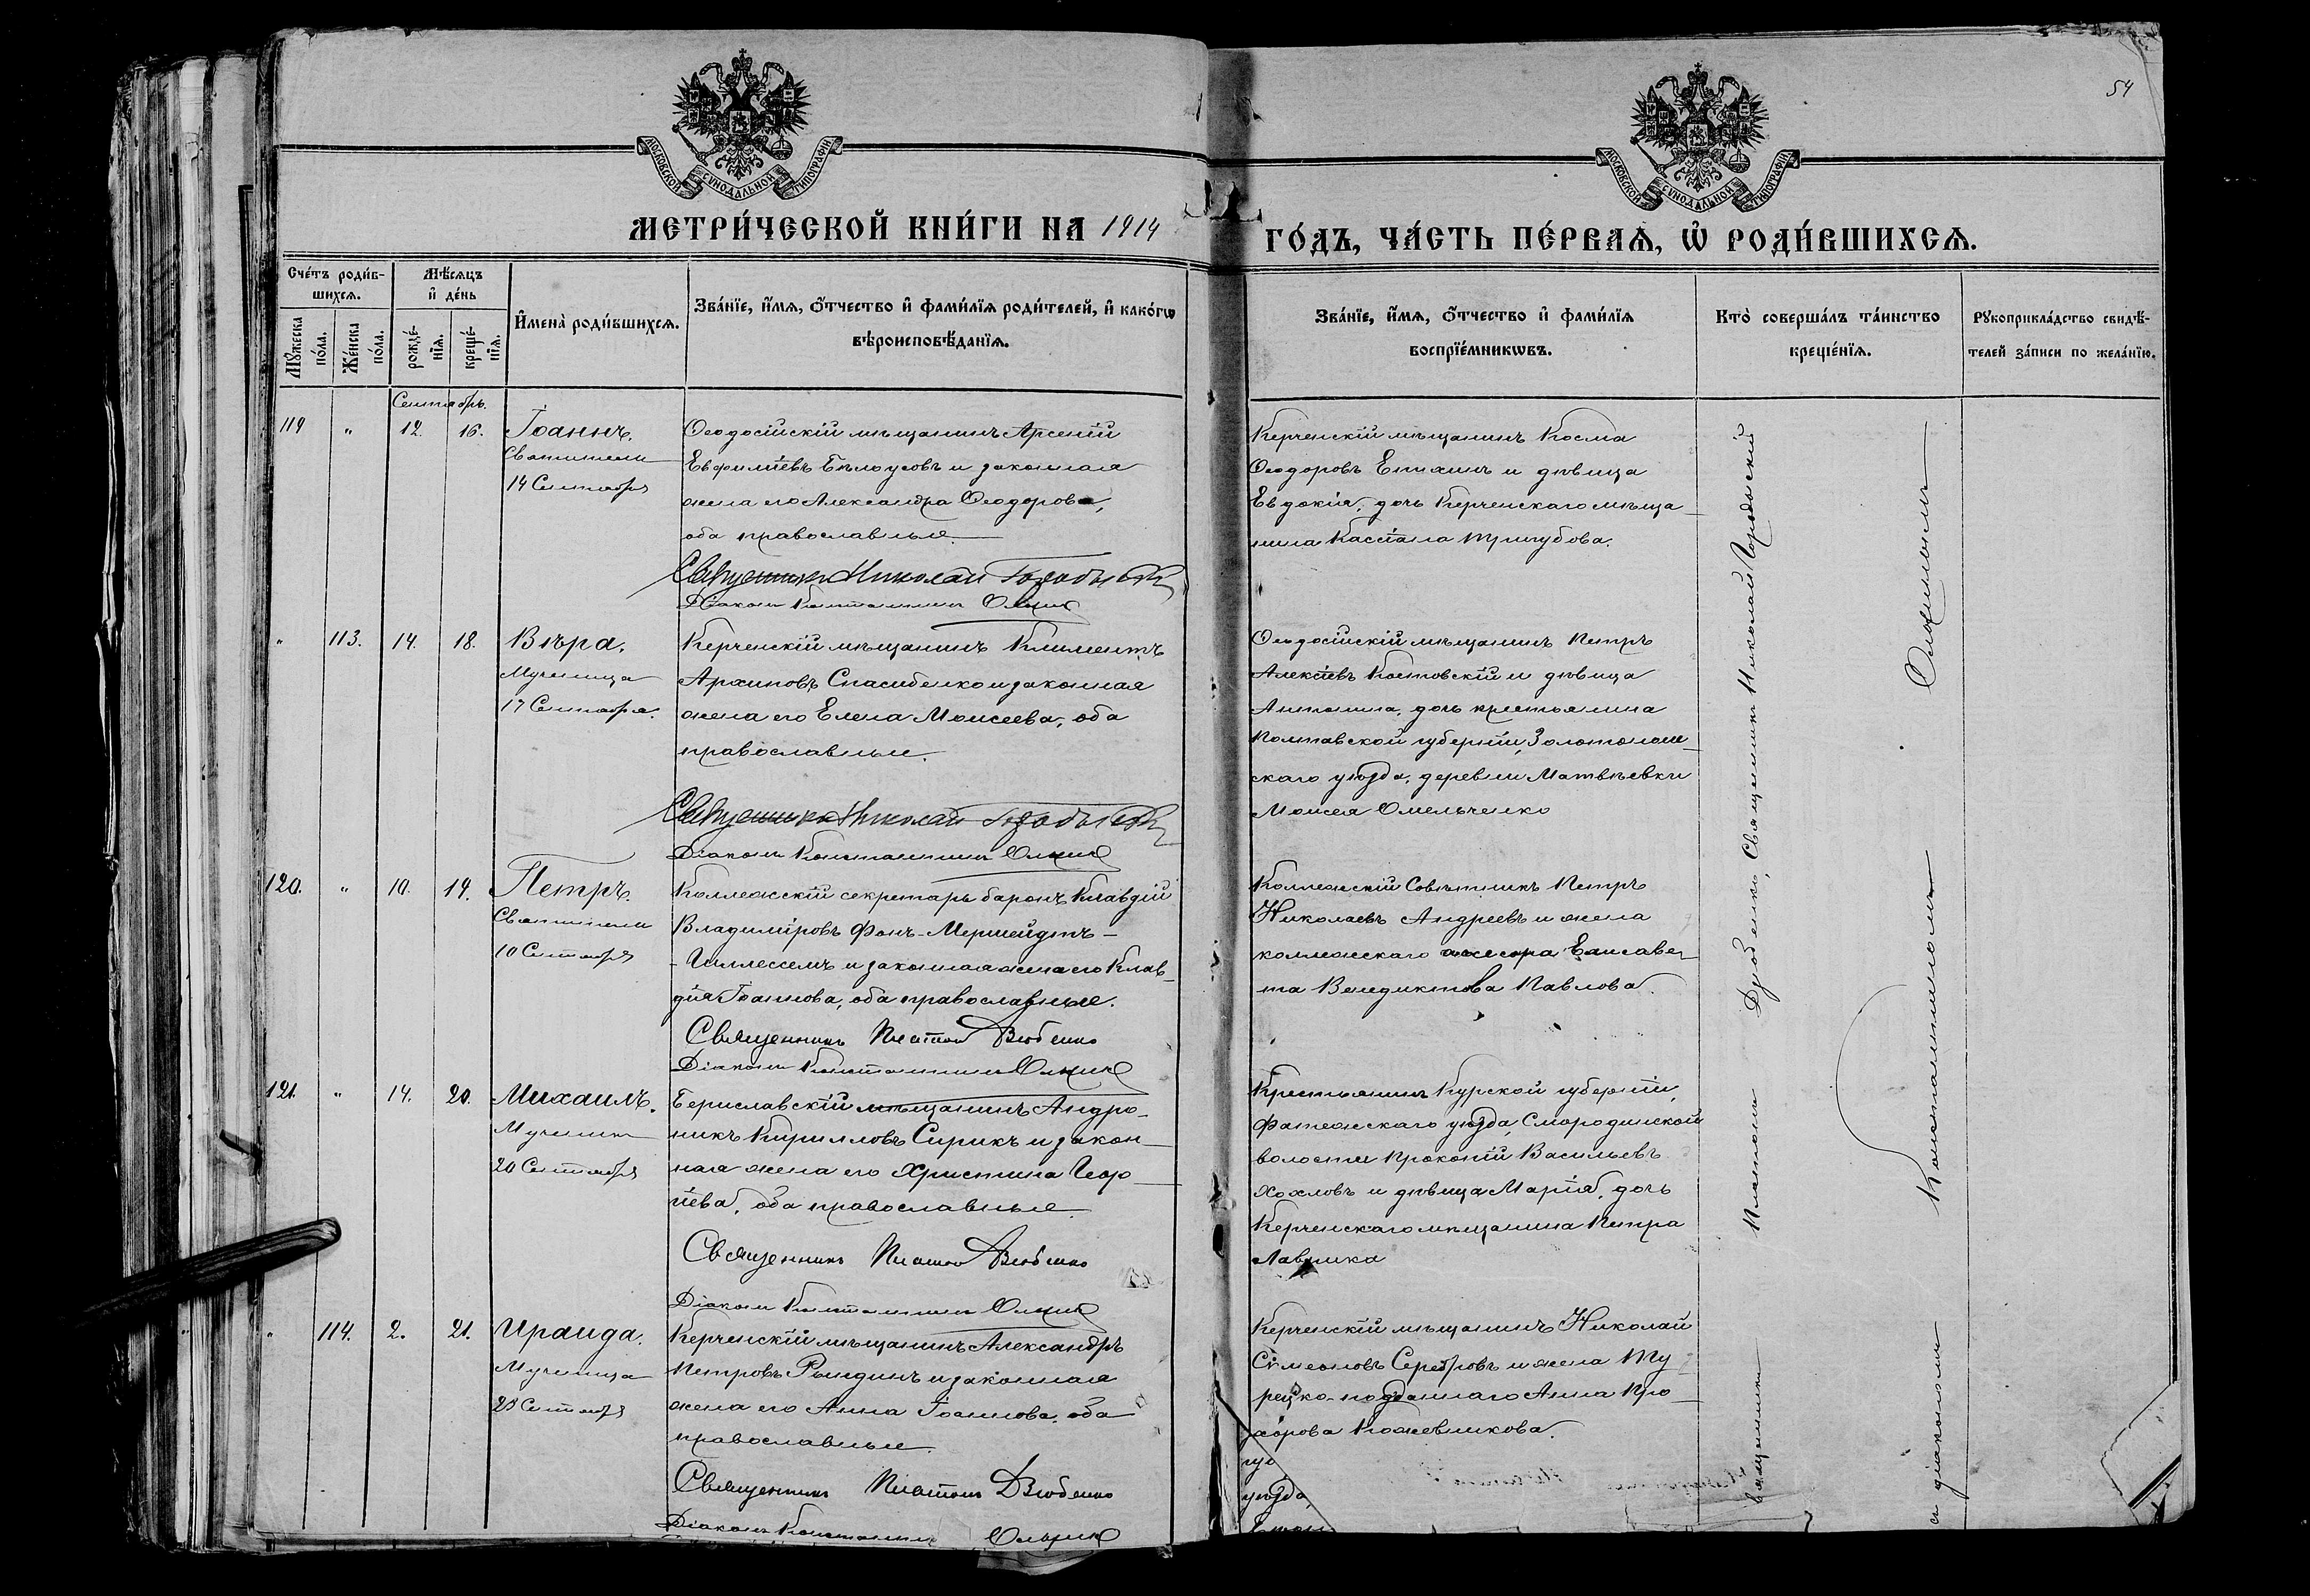 54
МОСКОВСКОЙ СѴНОДАЛЬНОЙ ТИПОГРАФІИ
МОСКОВСКОЙ СѴНОДАЛЬНОЙ ТИПОГРАФІИ
МЕТРИ́ЧЕСКОЙ КНИ́ГИ НА 1914
ГО́ДЪ, ЧА́СТЬ ПЕ́РВАѦ, Ѡ҆ РОДИ́ВШИХСѦ.
Сче́тъ роди́в-
шихсѧ.
Мꙋжеска
по́ла.
Же́нска
по́ла.
Мѣ́сѧцъ
и҆ де́нь
рожде́-
нїѧ.
креще́-
нїѧ.
И҆мена̀ роди́вшихсѧ.
Зва́нїе, и҆́мѧ, ѻ҆́тчество и҆ фами́лїѧ роди́телей, и҆ како́гѡ
вѣроисповѣ́данїѧ.
Зва́нїе, и҆́мѧ, ѻ҆́тчество и҆ фами́лїѧ
воспрїе́мникѡвъ.
Кто̀ соверша́лъ та́инство
креще́нїѧ.
Рꙋкоприкла́дство свидѣ́-
телей за́писи по жела́нїю.
Сентябрь.
119 " 12. 16. Іоаннъ.
Святителя
14 Сентября
Ѳеодосійскій мѣщанинъ Арсеній
Евфиміевъ Бѣлоусовъ и законная
жена его Александра Ѳеодорова,
оба православные.
Священникъ Николай Городынскій
Діаконъ Константинъ
Керченскій мѣщанинъ Косма
Ѳеодоровъ Епихинъ и дѣвица
Евдокія, дочь Керченскаго мѣща-
нина Кассіана Тригубова.
" 113. 14. 18. Вѣра.
Мученица
17 Сентября.
Керченскій мѣщанинъ Климентъ
Архиповъ Спасибенко и законная
жена его Елена Моисеева, оба
православные.
Священникъ Николай Городынскій
Діаконъ Константинъ
Ѳеодосійскій мѣщанинъ Петръ
Алексіевъ Костовскій и дѣвица
Антонина, дочь крестьянина
Полтавской губерніи, Золотонош-
скаго уѣзда, деревни Матвѣевки
Моисея Омельченко
120. " 10. 19. Петръ.
Святителя
10 Сентября
Коллежскій секретарь баронъ Клавдій
Владиміровъ Фонъ-Мершейдтъ-
-Гиллессемъ и законная жена его Клав-
дія Іоаннова, оба православные.
Священникъ Платонъ
Діаконъ Константинъ
Коллежскій Совѣтникъ Петръ
Николаевъ Андреевъ и жена
коллежскаго ассесора Елисаве-
та Венедиктова Павлова.
121. " 14. 20. Михаилъ.
Мученика
20 Сентября
Бериславскій мѣщанинъ Андро-
никъ Кирилловъ Сирикъ и закон-
ная жена его Христина Геор-
гіева, оба православные.
Священникъ Платонъ
Діаконъ Константинъ
Крестьянинъ Курской губерніи,
Фатежскаго уѣзда, Смородинской
волости Прокопій Васильевъ
Хохловъ и дѣвица Марія, дочь
Керченскаго мѣщанина Петра
Лаврика
" 114. 2. 21. Ираида.
Мученица
23 Сентября
Керченскій мѣщанинъ Александръ
Петровъ Рындинъ и законная
жена его Анна Іоаннова, оба
православные.
Священникъ Платонъ
Діаконъ Константинъ
Керченскій мѣщанинъ Николай
Симеоновъ Серебровъ и жена Ту-
рецко-подданнаго Анна Про-
хорова Кожевникова.
уѣзда
Священники Платонъ Дзюбенко, Священникъ Николай Городынскій
съ діакономъ Константиномъ